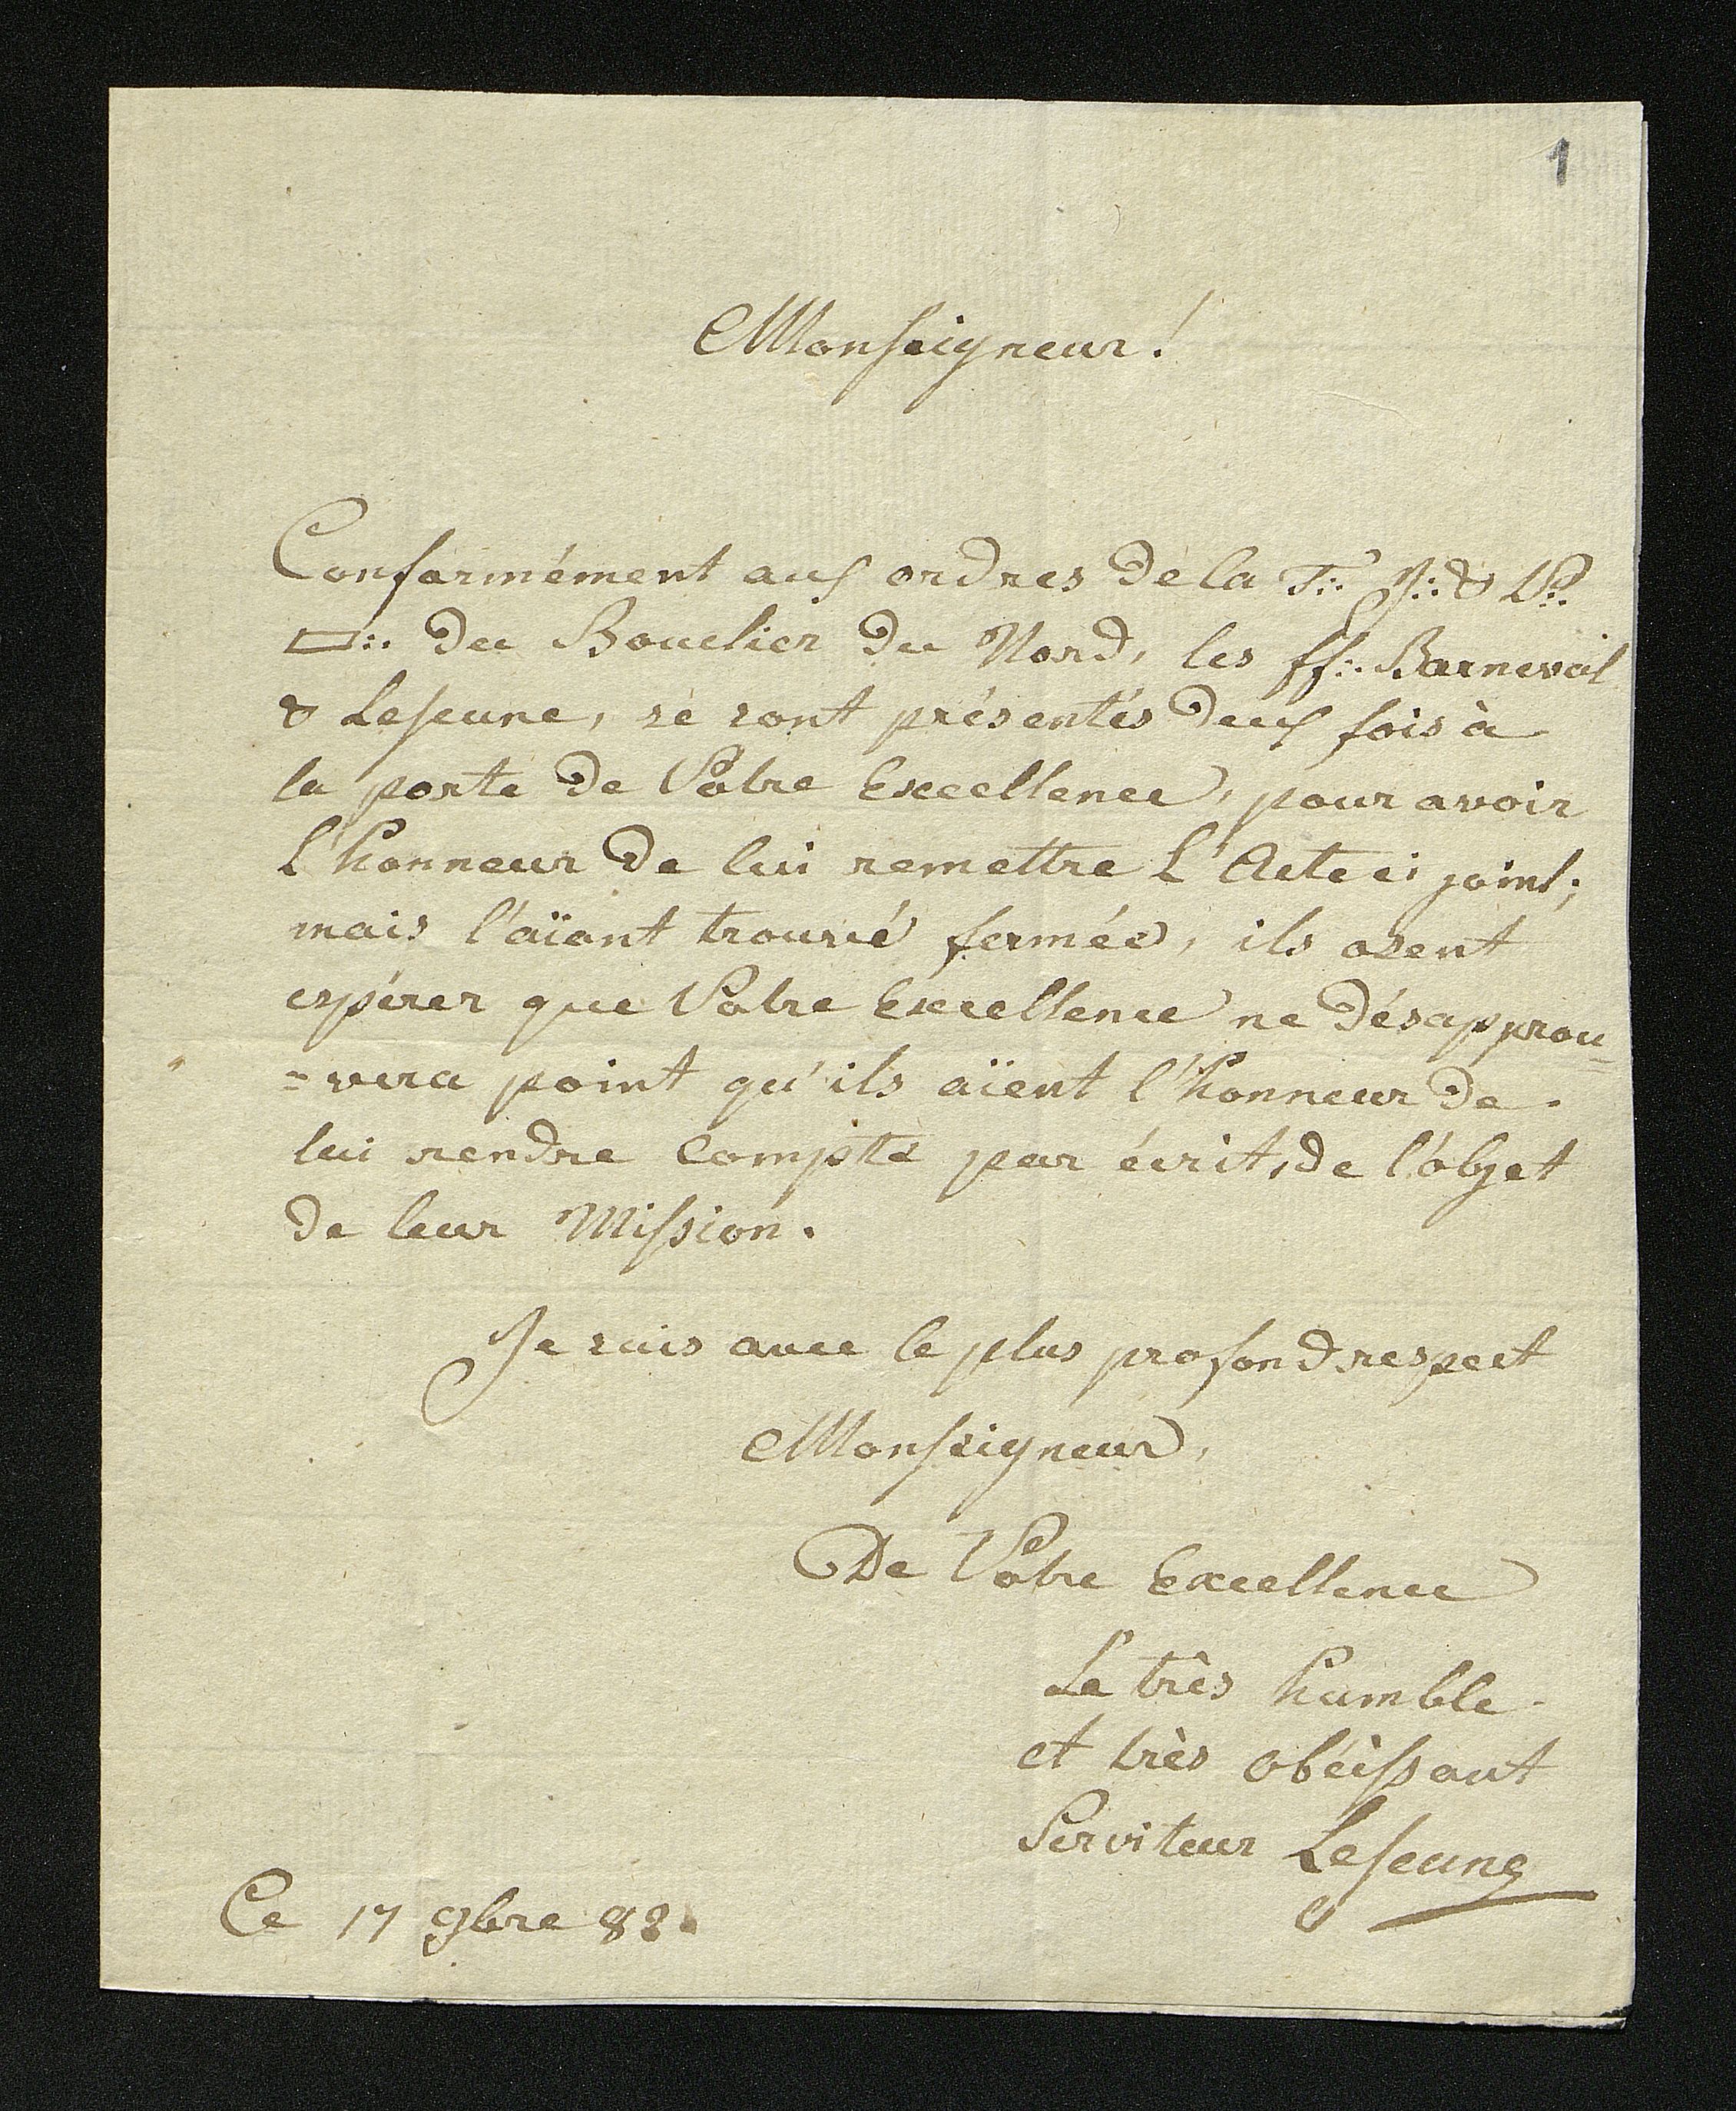 1
Monseigneur!
Conformément aux ordres de la T∴ J∴ & P∴
▭∴ du Bouclier du Nord, les ff∴ Barneval
& Lejeune, se sont présentés deux fois à
la porte de Votre Excellence, pour avoir
l'honneur de lui remettre L'Acte ci joint;
mais l'aïant trouvé fermée, ils osent
espérer que Votre Excellence ne désapprou=
=vera point qu'ils aïent l'honneur de
lui rendre compte par écrit, de l'objet
de leur Mission.
Je suis avec le plus profond respect
Monseigneur,
De Votre Excellence
Le très humble
et très obéissant
Serviteur Lejeune
Ce 17 9bre 82.